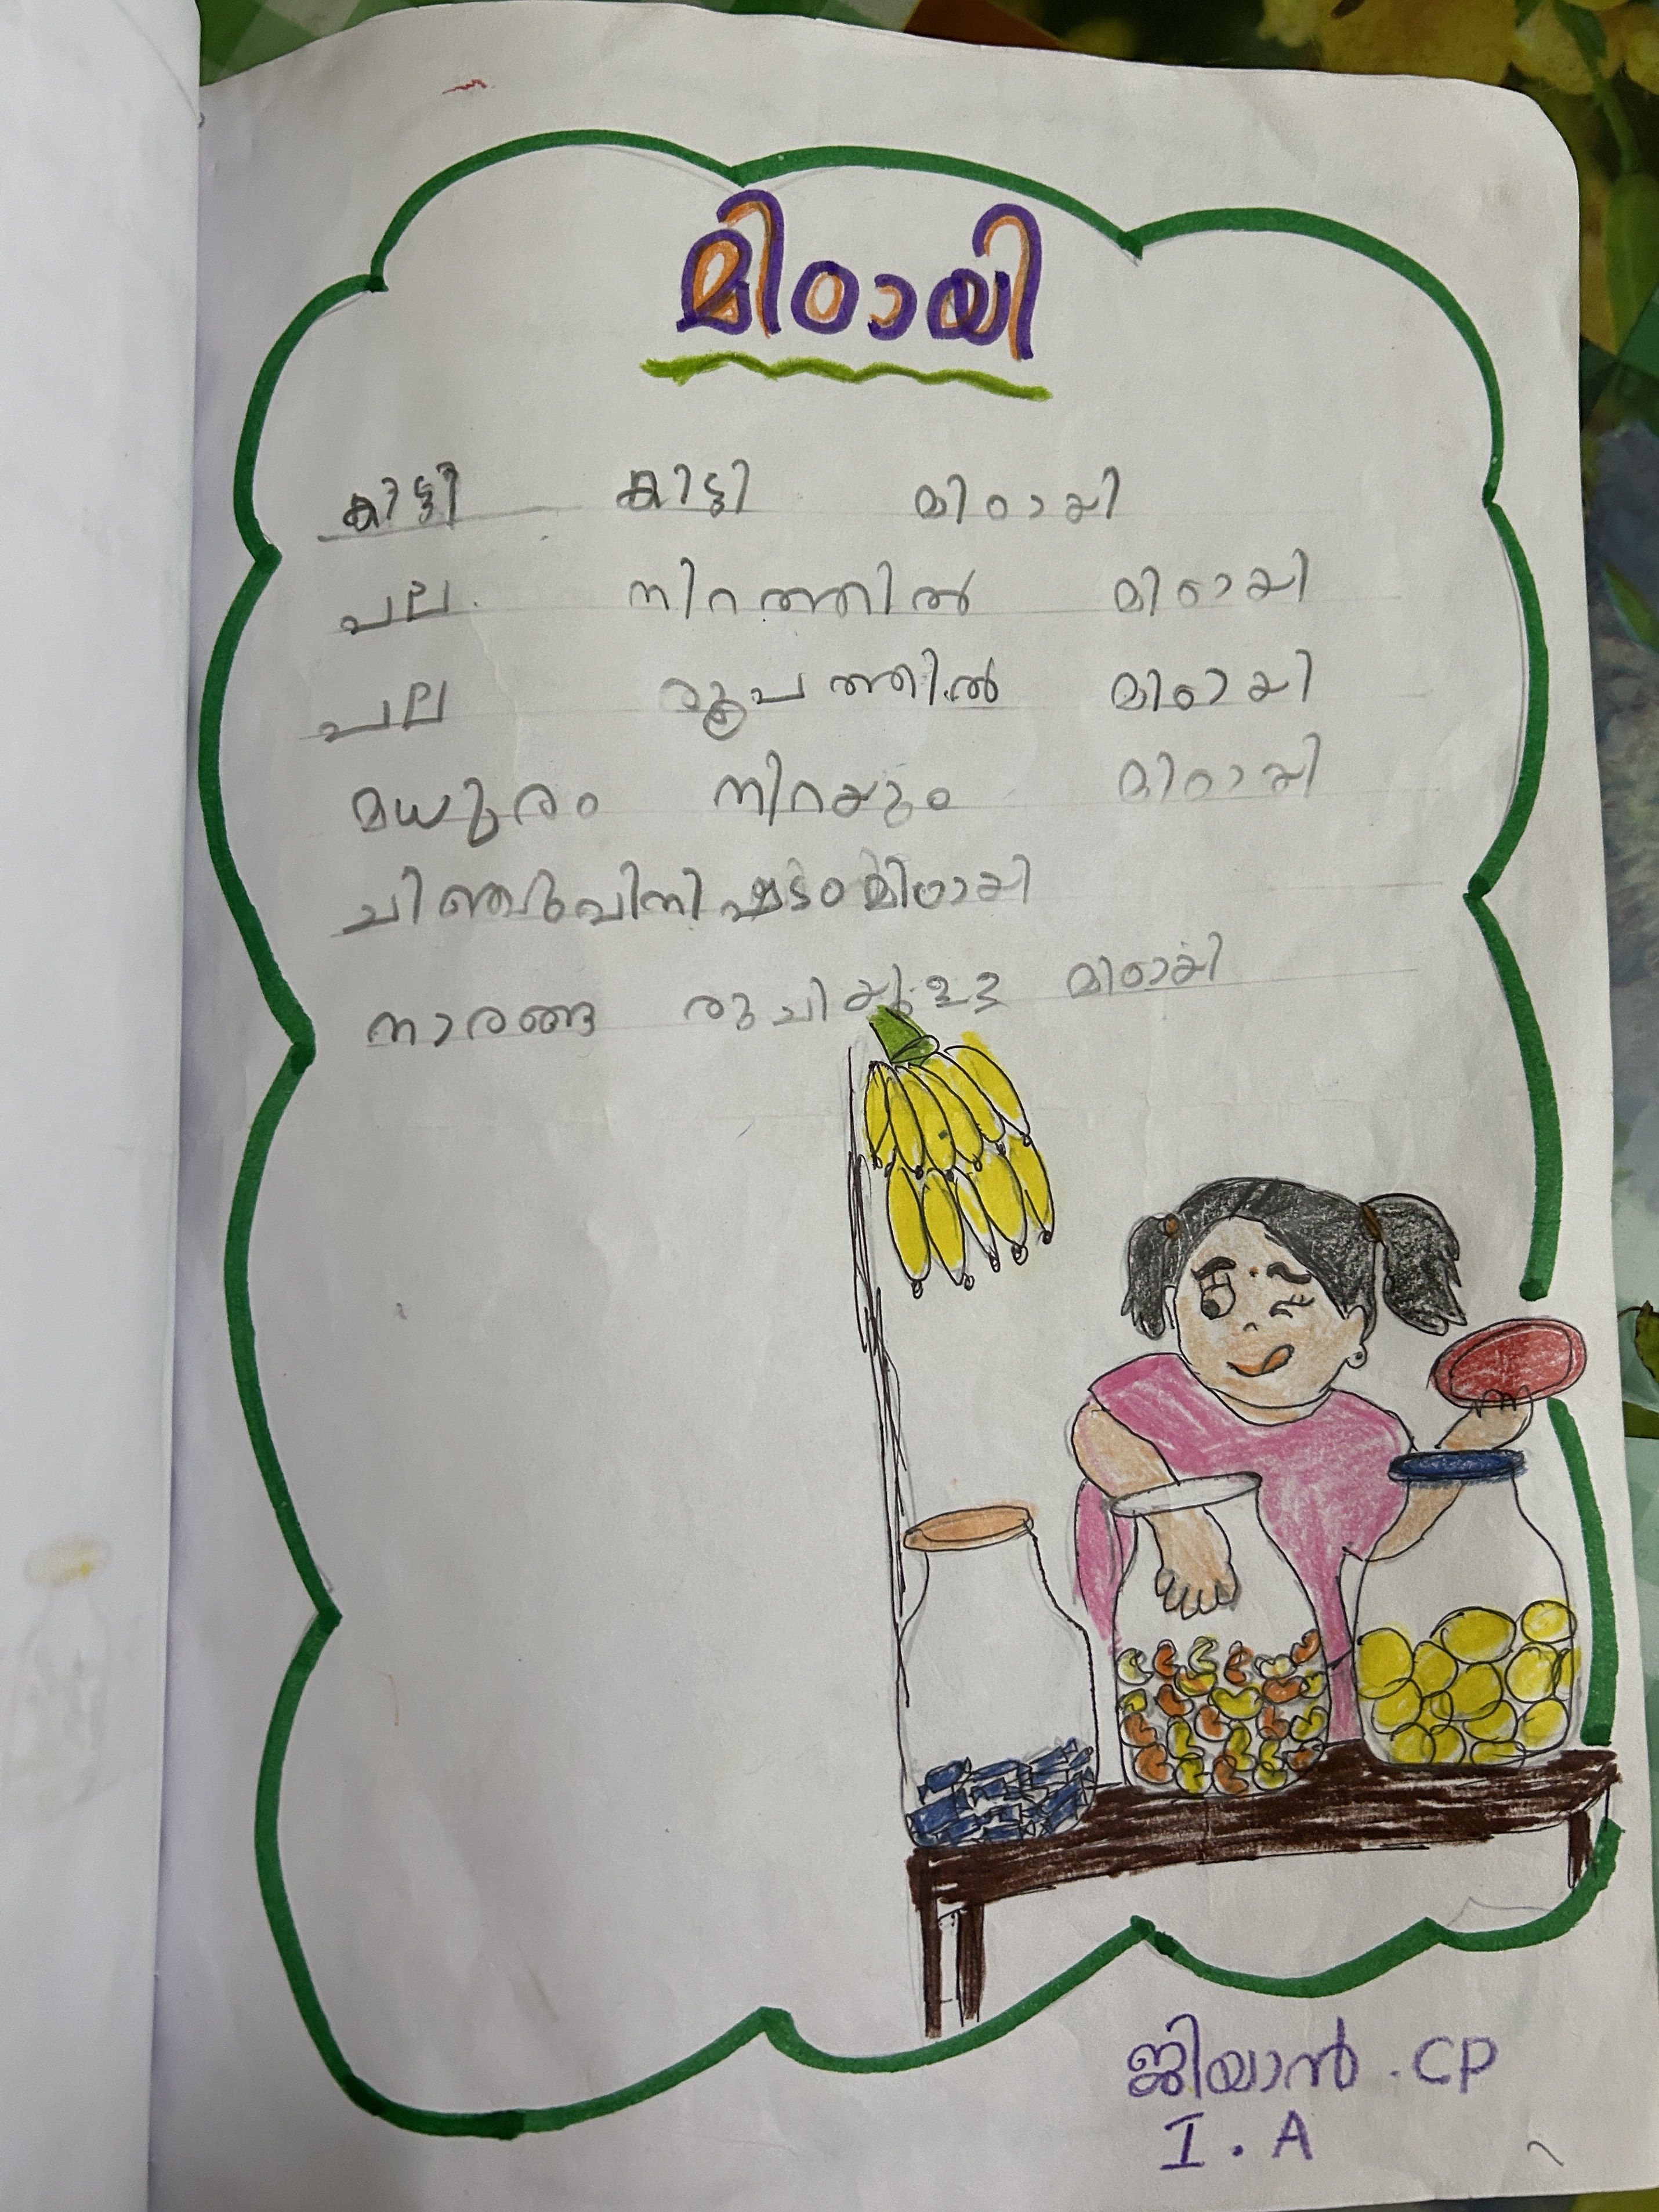 മിഠായി
കിട്ടി കിട്ടി മിഠായി
പല നിറത്തിൽ മിഠായി
പല രൂപത്തിൽ മിഠായി
മധുരം നിറയും മിഠായി
ചിഞ്ചുവിനിഷ്ടം മിഠായി
നാരങ്ങ രുചിയുള്ള മിഠായി
ജിയാൻ . CP
I . A